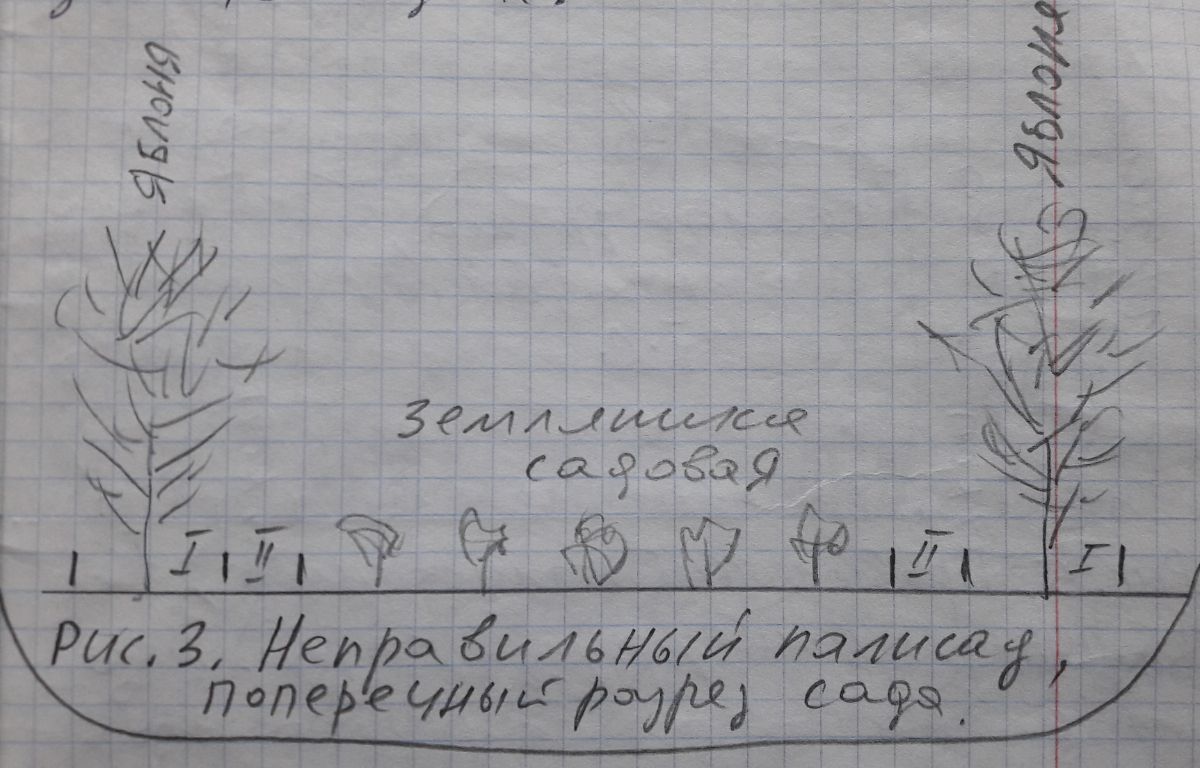 Яблонь
Яблоня
Земляника
садовая
I II II I
Рис. 3. Неправильный палисад,
поперечный разрез сада.